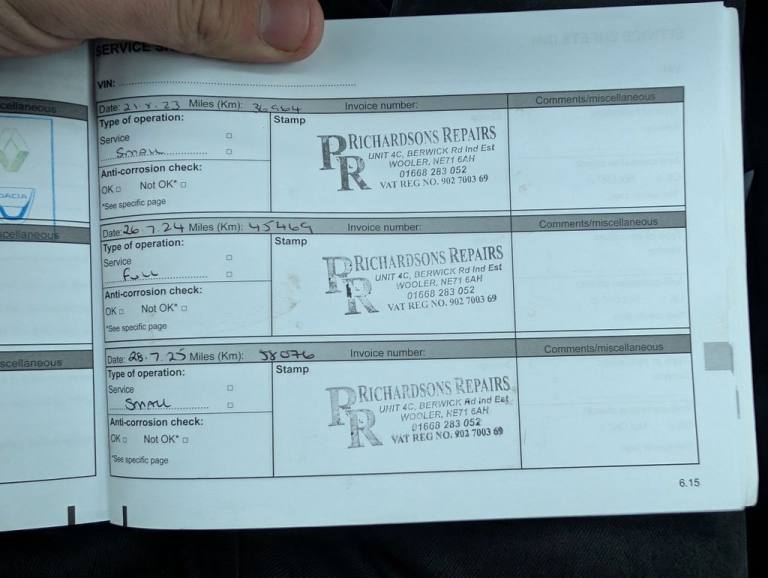 SERVICE
VIN:
Date: 21.8.23 Miles (Km): 36964 Invoice number: Comments/miscellaneous
Type of operation: Stamp
Service
Small
Anti-corrosion check:
OK Not OK*
*See specific page
RICHARDSONS REPAIRS
UNIT 4C, BERWICK Rd Ind Est
WOOLER, NE71 6AH
01668 283 052
VAT REG NO. 902 7003 69
PR
Date: 26.7.24 Miles (Km): 45469 Invoice number: Comments/miscellaneous
Type of operation: Stamp
Service
Full
Anti-corrosion check:
OK Not OK*
*See specific page
RICHARDSONS REPAIRS
UNIT 4C, BERWICK Rd Ind Est
WOOLER, NE71 6AH
01668 283 052
VAT REG NO. 902 7003 69
PR
Date: 28.7.25 Miles (Km): 58076 Invoice number: Comments/miscellaneous
Type of operation: Stamp
Service
Small
Anti-corrosion check:
OK Not OK*
*See specific page
RICHARDSONS REPAIRS
UNIT 4C, BERWICK Rd Ind Est
WOOLER, NE71 6AH
01668 283 052
VAT REG NO. 902 7003 69
PR
6.15
cellaneous
DACIA
scellaneous
scellaneous